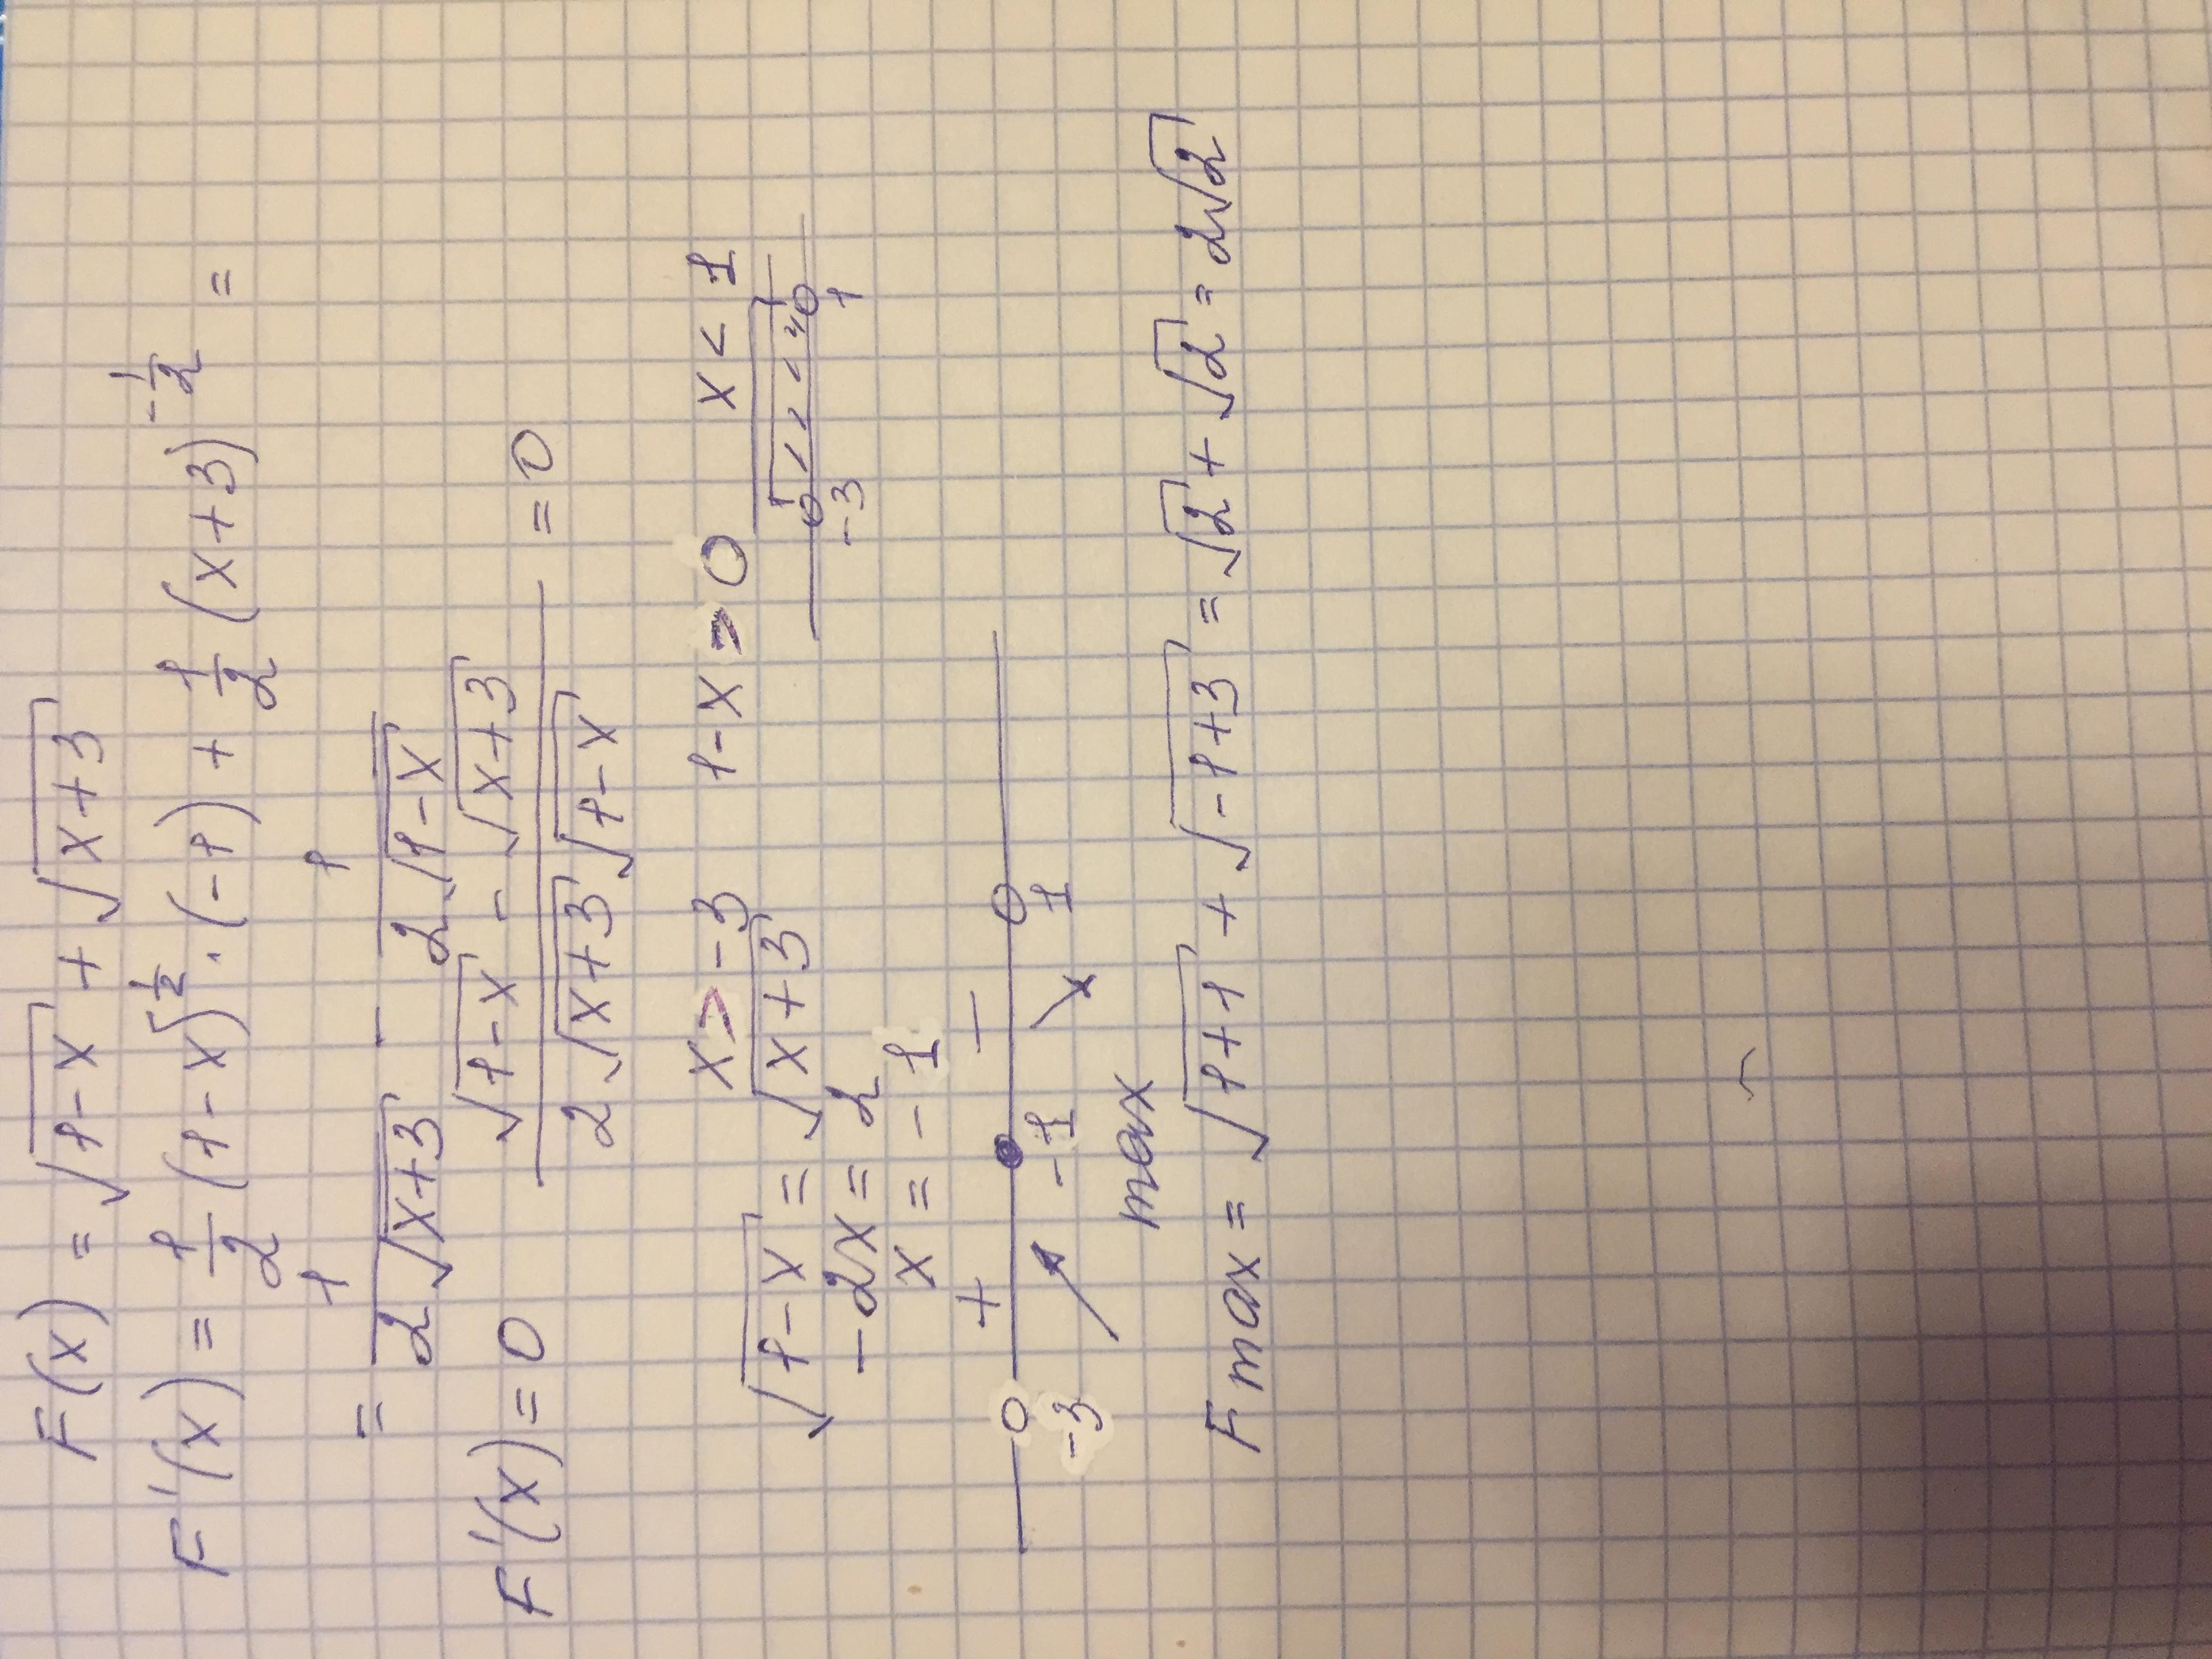 F(x) = √(1-x) + √(x+3)
F'(x) = 1/2 (1-x)^(1/2) · (-1) + 1/2 (x+3)^(-1/2) =
= 1/(2√(x+3)) - 1/(2√(1-x))
F'(x) = 0 (√(1-x) - √(x+3))/(2√(x+3) √(1-x)) = 0
x > -3 1-x > 0 x < 1
√(1-x) = √(x+3)
-3 1
-2x = 2
x = -1
+ -
-3 -1 1
max
F max = √(1+1) + √(-1+3) = √2 + √2 = 2√2